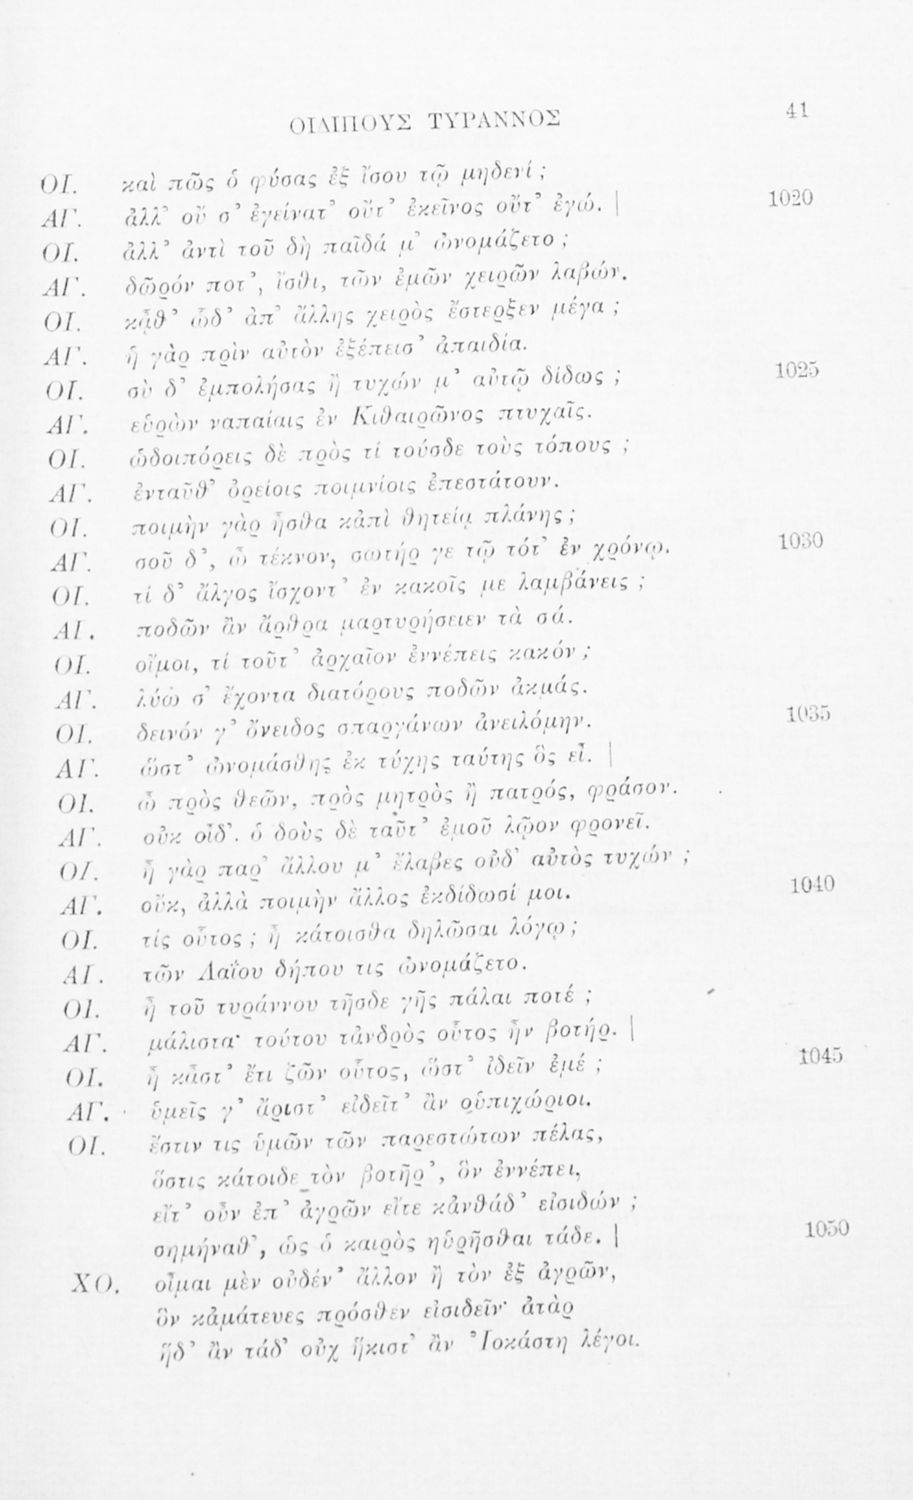 ΟΙΔΙΠΟΥΣ ΤΥΡΑΝΝΟΣ 41
ΟΙ. καὶ πῶς ὁ φύσας ἐξ ἴσου τῷ μηδενί ;
ΑΓ. ἀλλ’ οὔ σ’ ἐγείνατ’ οὔτ’ ἐκεῖνος οὔτ’ ἐγώ. | 1020
ΟΙ. ἀλλ’ ἀντὶ τοῦ δὴ παῖδά μ’ ὠνομάζετο ;
ΑΓ. δῶρόν ποτ’, ἴσθι, τῶν ἐμῶν χειρῶν λαβών.
ΟΙ. κᾆθ’ ὧδ’ ἀπ’ ἄλλης χειρὸς ἔστερξεν μέγα ;
ΑΓ. ἡ γὰρ πρὶν αὐτὸν ἐξέπεισ’ ἀπαιδία.
ΟΙ. σὺ δ’ ἐμπολήσας ἢ τυχών μ’ αὐτῷ δίδως ; 1025
ΑΓ. εὑρὼν ναπαίαις ἐν Κιθαιρῶνος πτυχαῖς.
ΟΙ. ὡδοιπόρεις δὲ πρὸς τί τούσδε τοὺς τόπους ;
ΑΓ. ἐνταῦθ’ ὀρείοις ποιμνίοις ἐπεστάτουν.
ΟΙ. ποιμὴν γὰρ ἦσθα κἀπὶ θητείᾳ πλάνης ;
ΑΓ. σοῦ δ’, ὦ τέκνον, σωτήρ γε τῷ τότ’ ἐν χρόνῳ. 1030
ΟΙ. τί δ’ ἄλγος ἴσχοντ’ ἐν κακοῖς με λαμβάνεις ;
ΑΓ. ποδῶν ἂν ἄρθρα μαρτυρήσειεν τὰ σά.
ΟΙ. οἴμοι, τί τοῦτ’ ἀρχαῖον ἐννέπεις κακόν ;
ΑΓ. λύω σ’ ἔχοντα διατόρους ποδῶν ἀκμάς.
ΟΙ. δεινόν γ’ ὄνειδος σπαργάνων ἀνειλόμην. 1035
ΑΓ. ὥστ’ ὠνομάσθης ἐκ τύχης ταύτης ὃς εἶ. |
ΟΙ. ὦ πρὸς θεῶν, πρὸς μητρὸς ἢ πατρός, φράσον.
ΑΓ. οὐκ οἶδ’. ὁ δοὺς δὲ ταῦτ’ ἐμοῦ λῷον φρονεῖ.
ΟΙ. ἦ γὰρ παρ’ ἄλλου μ’ ἔλαβες οὐδ’ αὐτὸς τυχών ;
ΑΓ. οὔκ, ἀλλὰ ποιμὴν ἄλλος ἐκδίδωσί μοι. 1040
ΟΙ. τίς οὗτος ; ἦ κάτοισθα δηλῶσαι λόγῳ ;
ΑΓ. τῶν Λαΐου δήπου τις ὠνομάζετο.
ΟΙ. ἦ τοῦ τυράννου τῆσδε γῆς πάλαι ποτέ ;
ΑΓ. μάλιστα· τούτου τἀνδρὸς οὗτος ἦν βοτήρ. |
ΟΙ. ἦ κἄστ’ ἔτι ζῶν οὗτος, ὥστ’ ἰδεῖν ἐμέ ; 1045
ΑΓ. ὑμεῖς γ’ ἄριστ’ εἰδεῖτ’ ἂν οὑπιχώριοι.
ΟΙ. ἔστιν τις ὑμῶν τῶν παρεστώτων πέλας,
ὅστις κάτοιδε τὸν βοτῆρ’, ὃν ἐννέπει,
εἴτ’ οὖν ἐπ’ ἀγρῶν εἴτε κἀνθάδ’ εἰσιδών ;
σημήναθ’, ὡς ὁ καιρὸς ηὑρῆσθαι τάδε. | 1050
ΧΟ. οἶμαι μὲν οὐδέν’ ἄλλον ἢ τὸν ἐξ ἀγρῶν,
ὃν κἀμάτευες πρόσθεν εἰσιδεῖν· ἀτὰρ
ἥδ’ ἂν τάδ’ οὐχ ἥκιστ’ ἂν Ἰοκάστη λέγοι.